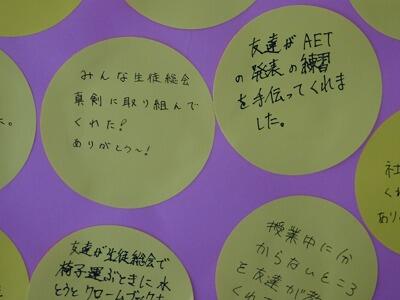 みんな生徒総会
真剣に取り組んで
くれた!
ありがとう~!
友達がAET
の発表の練習
を手伝ってくれま
した。
た。
社
くれ
あり
友達が生徒総会で
椅子運ぶときに水
とうとクロームブックも
授業中に分
からないところ
を友達が教
くれ